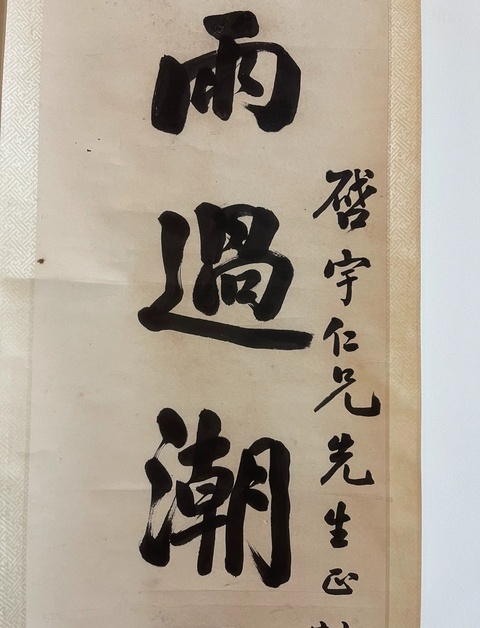 雨過潮
啓宇仁兄先生正